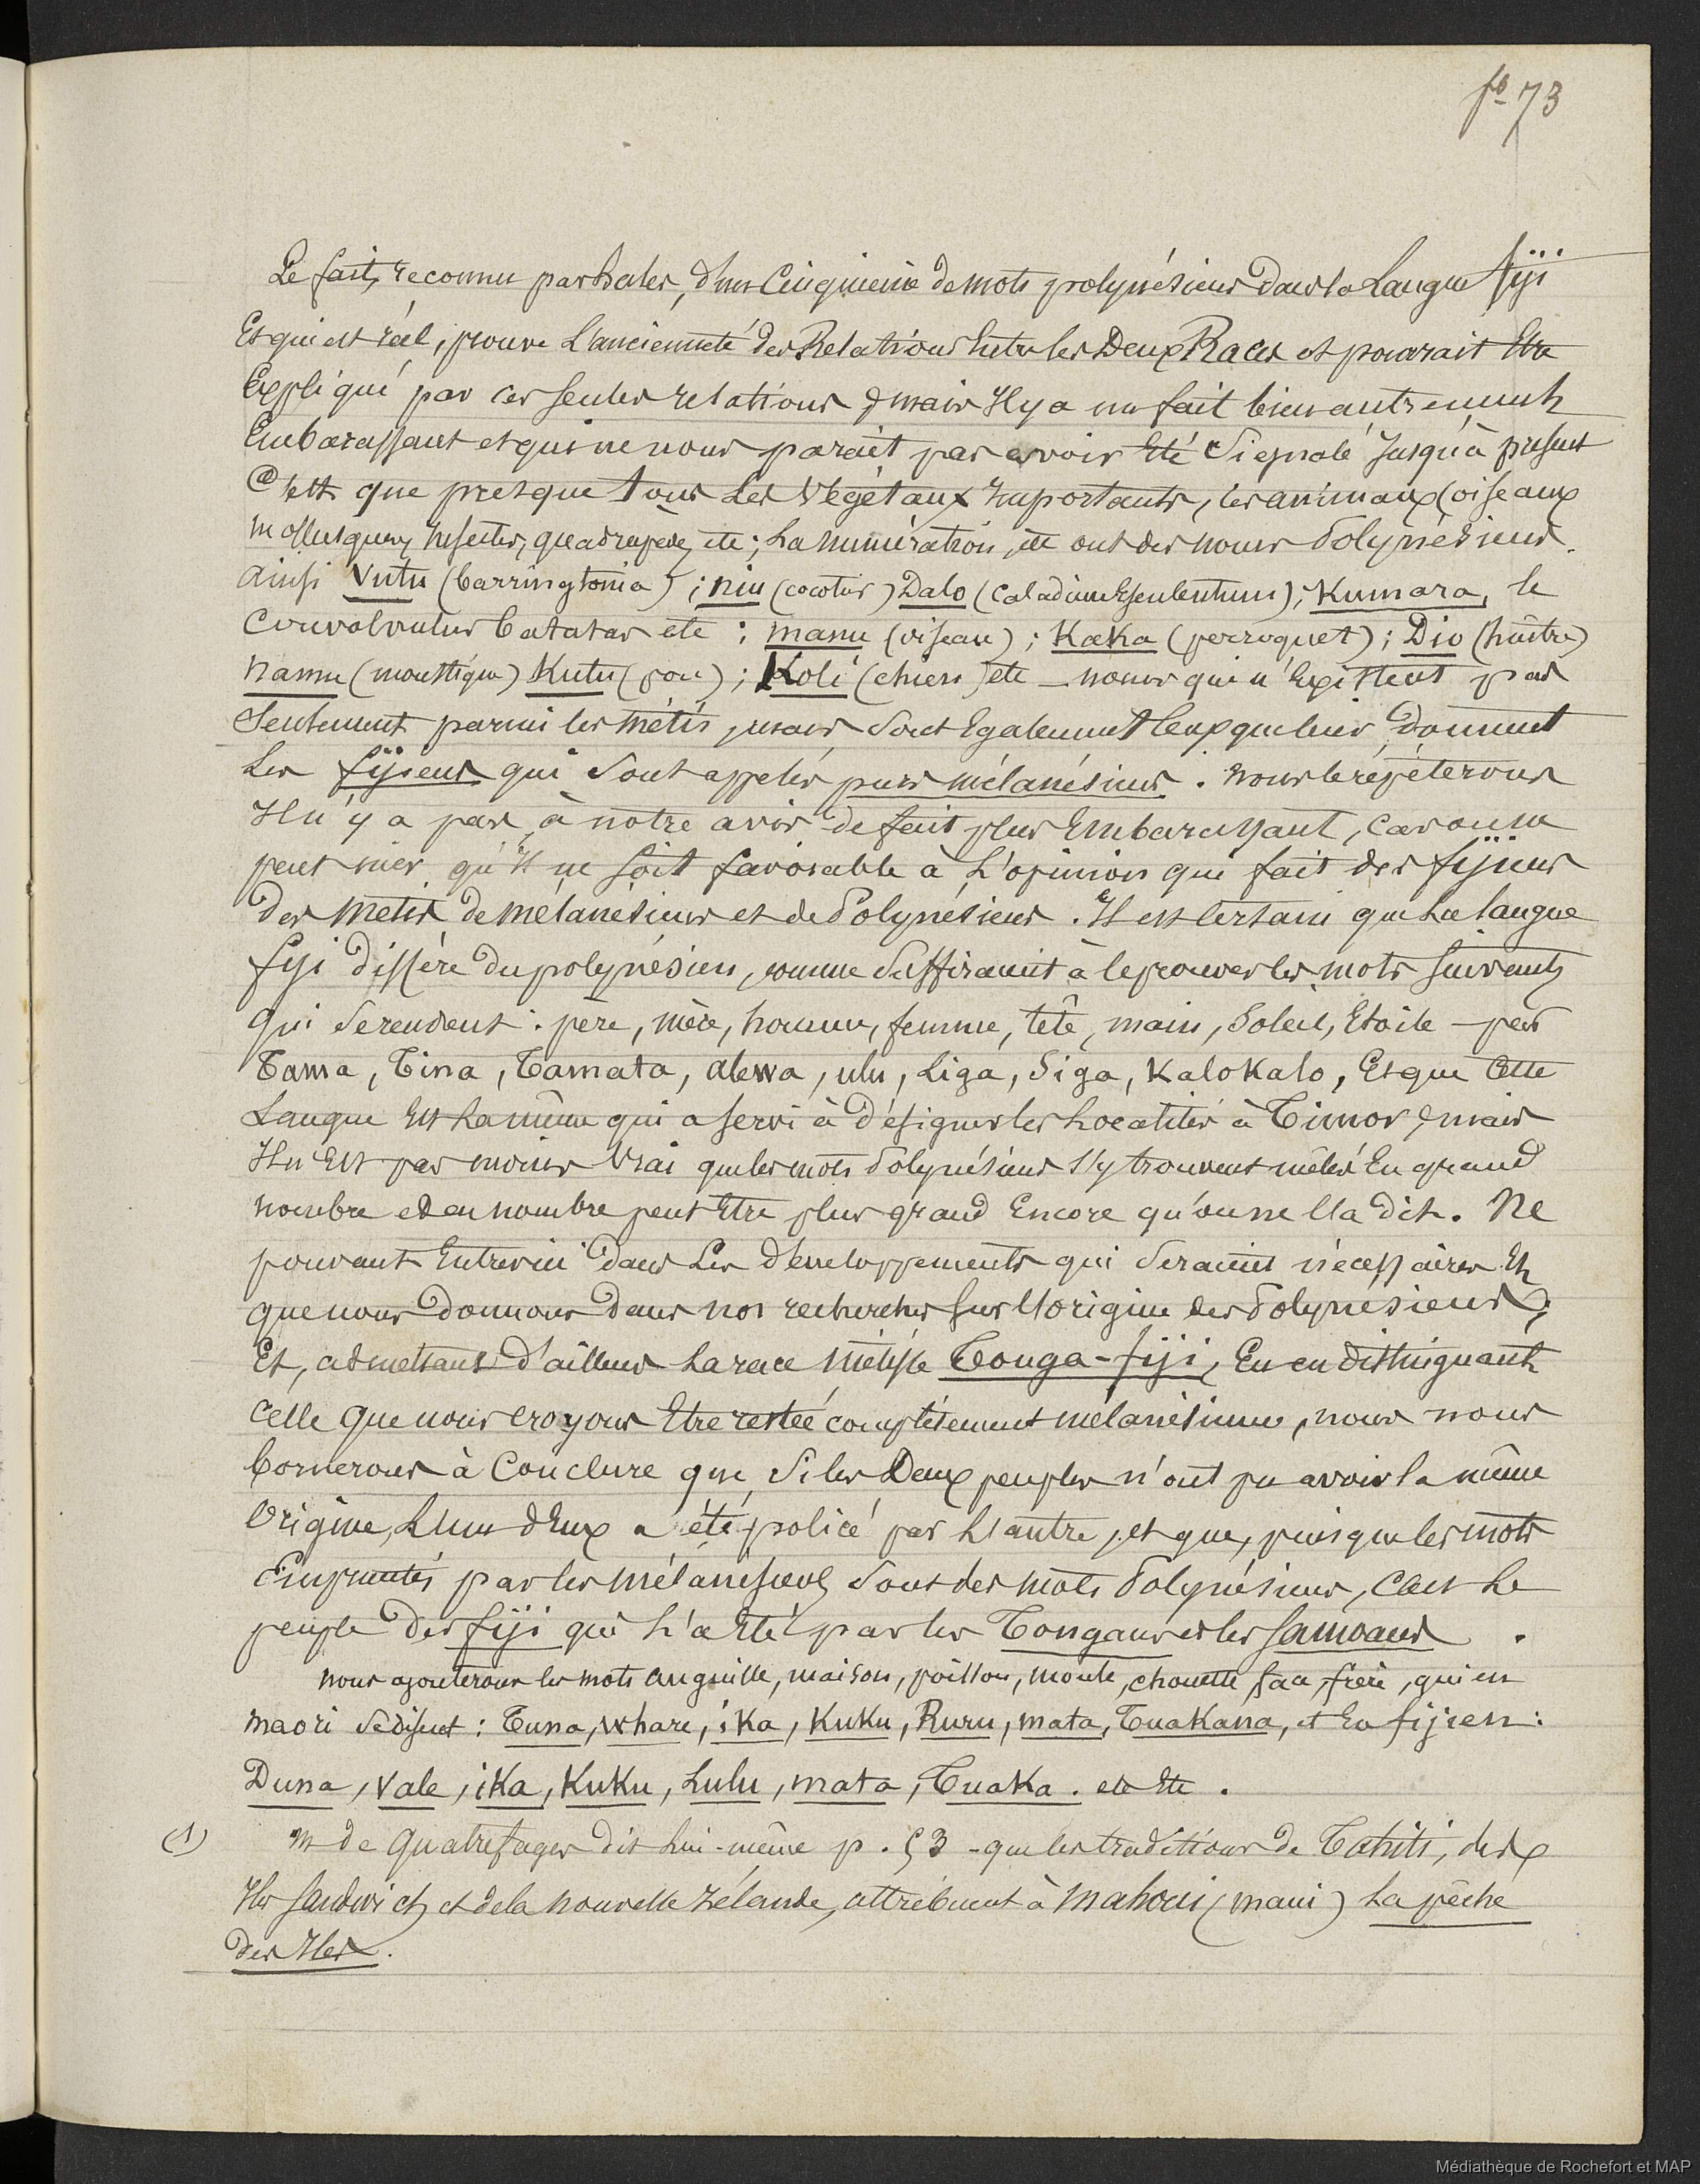 fo 73
Le fait, reconnu par hales, d'un Cinquieme de mots polynésiens dans la Langue fiji
Et qui est réel, prouve L'ancienneté des Relations Entre les Deux Races et pourrait Etre
Expliqué par ces seules relations ; mais Il y a un fait bien autrement
Embarassant et qui ne nous parait pas avoir Eté Signalé Jusqu'à présent
C'est que presque tous Les Végétaux Importants, les animaux (oiseaux
mollusques, Insectes, quadrupèdes, etc; La numération, etc ont des noms Polynésiens.
ainsi Vutu (barringtonia) ; niu (cocotier) Dalo (Caladium Esculentum); Kumara, le
Convolvulus batatas etc ; manu (oiseau) ; Kaka (perroquet) ; Dio (huitre)
namu (moustique) Kutu (pou) ; Koli (chien) etc - noms qui n'Existent pas
Seulement parmi les métis, mais Sont Egalement Ceux que leur donnent
Les fijiens qui Sont appelés purs mélanésiens. nous le répèterons
Il n'y a pas à notre avis de fait plus Embarassant, car on ne
peut nier qu'Il ne soit favorable à L'opinion qui fait des fijiens
Des métis de mélanésiens et de Polynésiens. Il est Certain que La langue
fiji diffère du polynésien, comme Suffiraient à le prouver les mots suivants
qui Se rendent : père, mère, homme, femme, tête, main, Soleil, Etoile - par
Tama, Tina, Tamata, alewa, ulu, Liga, Siga, Kalokalo, Et que Cette
Langue Est La même qui a servi à désigner les Localités à Timor ; mais
Il n'Est pas moins Vrai que les mots Polynésiens s'y trouvent mêlés En grand
nombre et en nombre peut Etre plus grand Encore qu'on ne l'a dit. Ne
pouvant Entrer ici dans Les développements qui Seraient nécessaires Et
que nous donnons dans nos recherches sur L'origine des Polynésiens ;
Et, admettant d'ailleurs La race métisse Tonga-fiji, En en distinguant
Celle que nous croyons Etre restée complètement mélanésienne, nous nous
bornerons à Conclure que, Si les Deux peuples n'ont pu avoir la même
Origine, L'un d'Eux a été policé par L'autre ; et que, puisque les mots
Empruntés par les mélanésiens Sont des mots Polynésiens, C'est Le
peuple des fiji qui L'a Eté par les Tongans et les Samoans .
nous ajouterons les mots anguille, maison, poisson, moule, chouette, face, frère, qui en
maori Se disent : Tuna, whare, ika, Kuku, Ruru, mata, Tuakana, et En fijien :
Duna, Vale, ika, Kuku, Lulu, mata, Tuaka. etc Etc .
(1) m de Quatrefages dit Lui-même p. 53 - que les traditions de Tahiti, des
Iles Sandwich et de la nouvelle Zélande, attribuent à Mahoui (maui) La pêche
des Iles.
Médiathèque de Rochefort et MAP